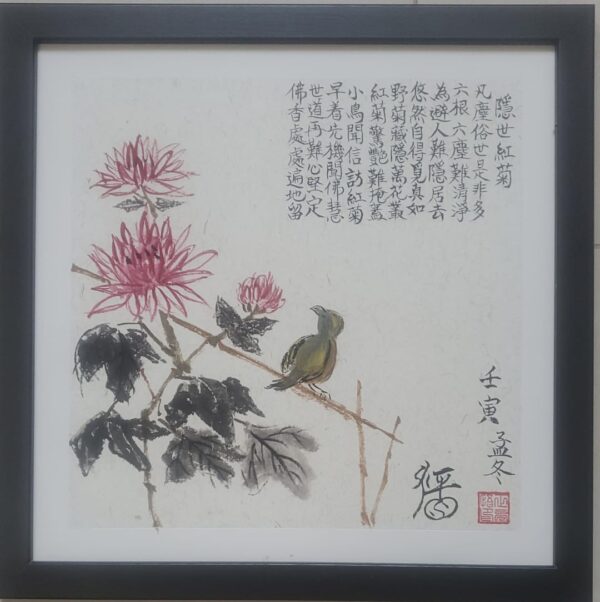 隱世紅菊
凡塵俗世是非多
六根六塵難清淨
為避人難隱居去
悠然自得覓真如
野菊藏隱萬花叢
紅菊驚艷難掩蓋
小鳥聞信訪紅菊
早着先機開佛慧
世道再難心堅定
佛香處處遍地留
壬寅孟冬